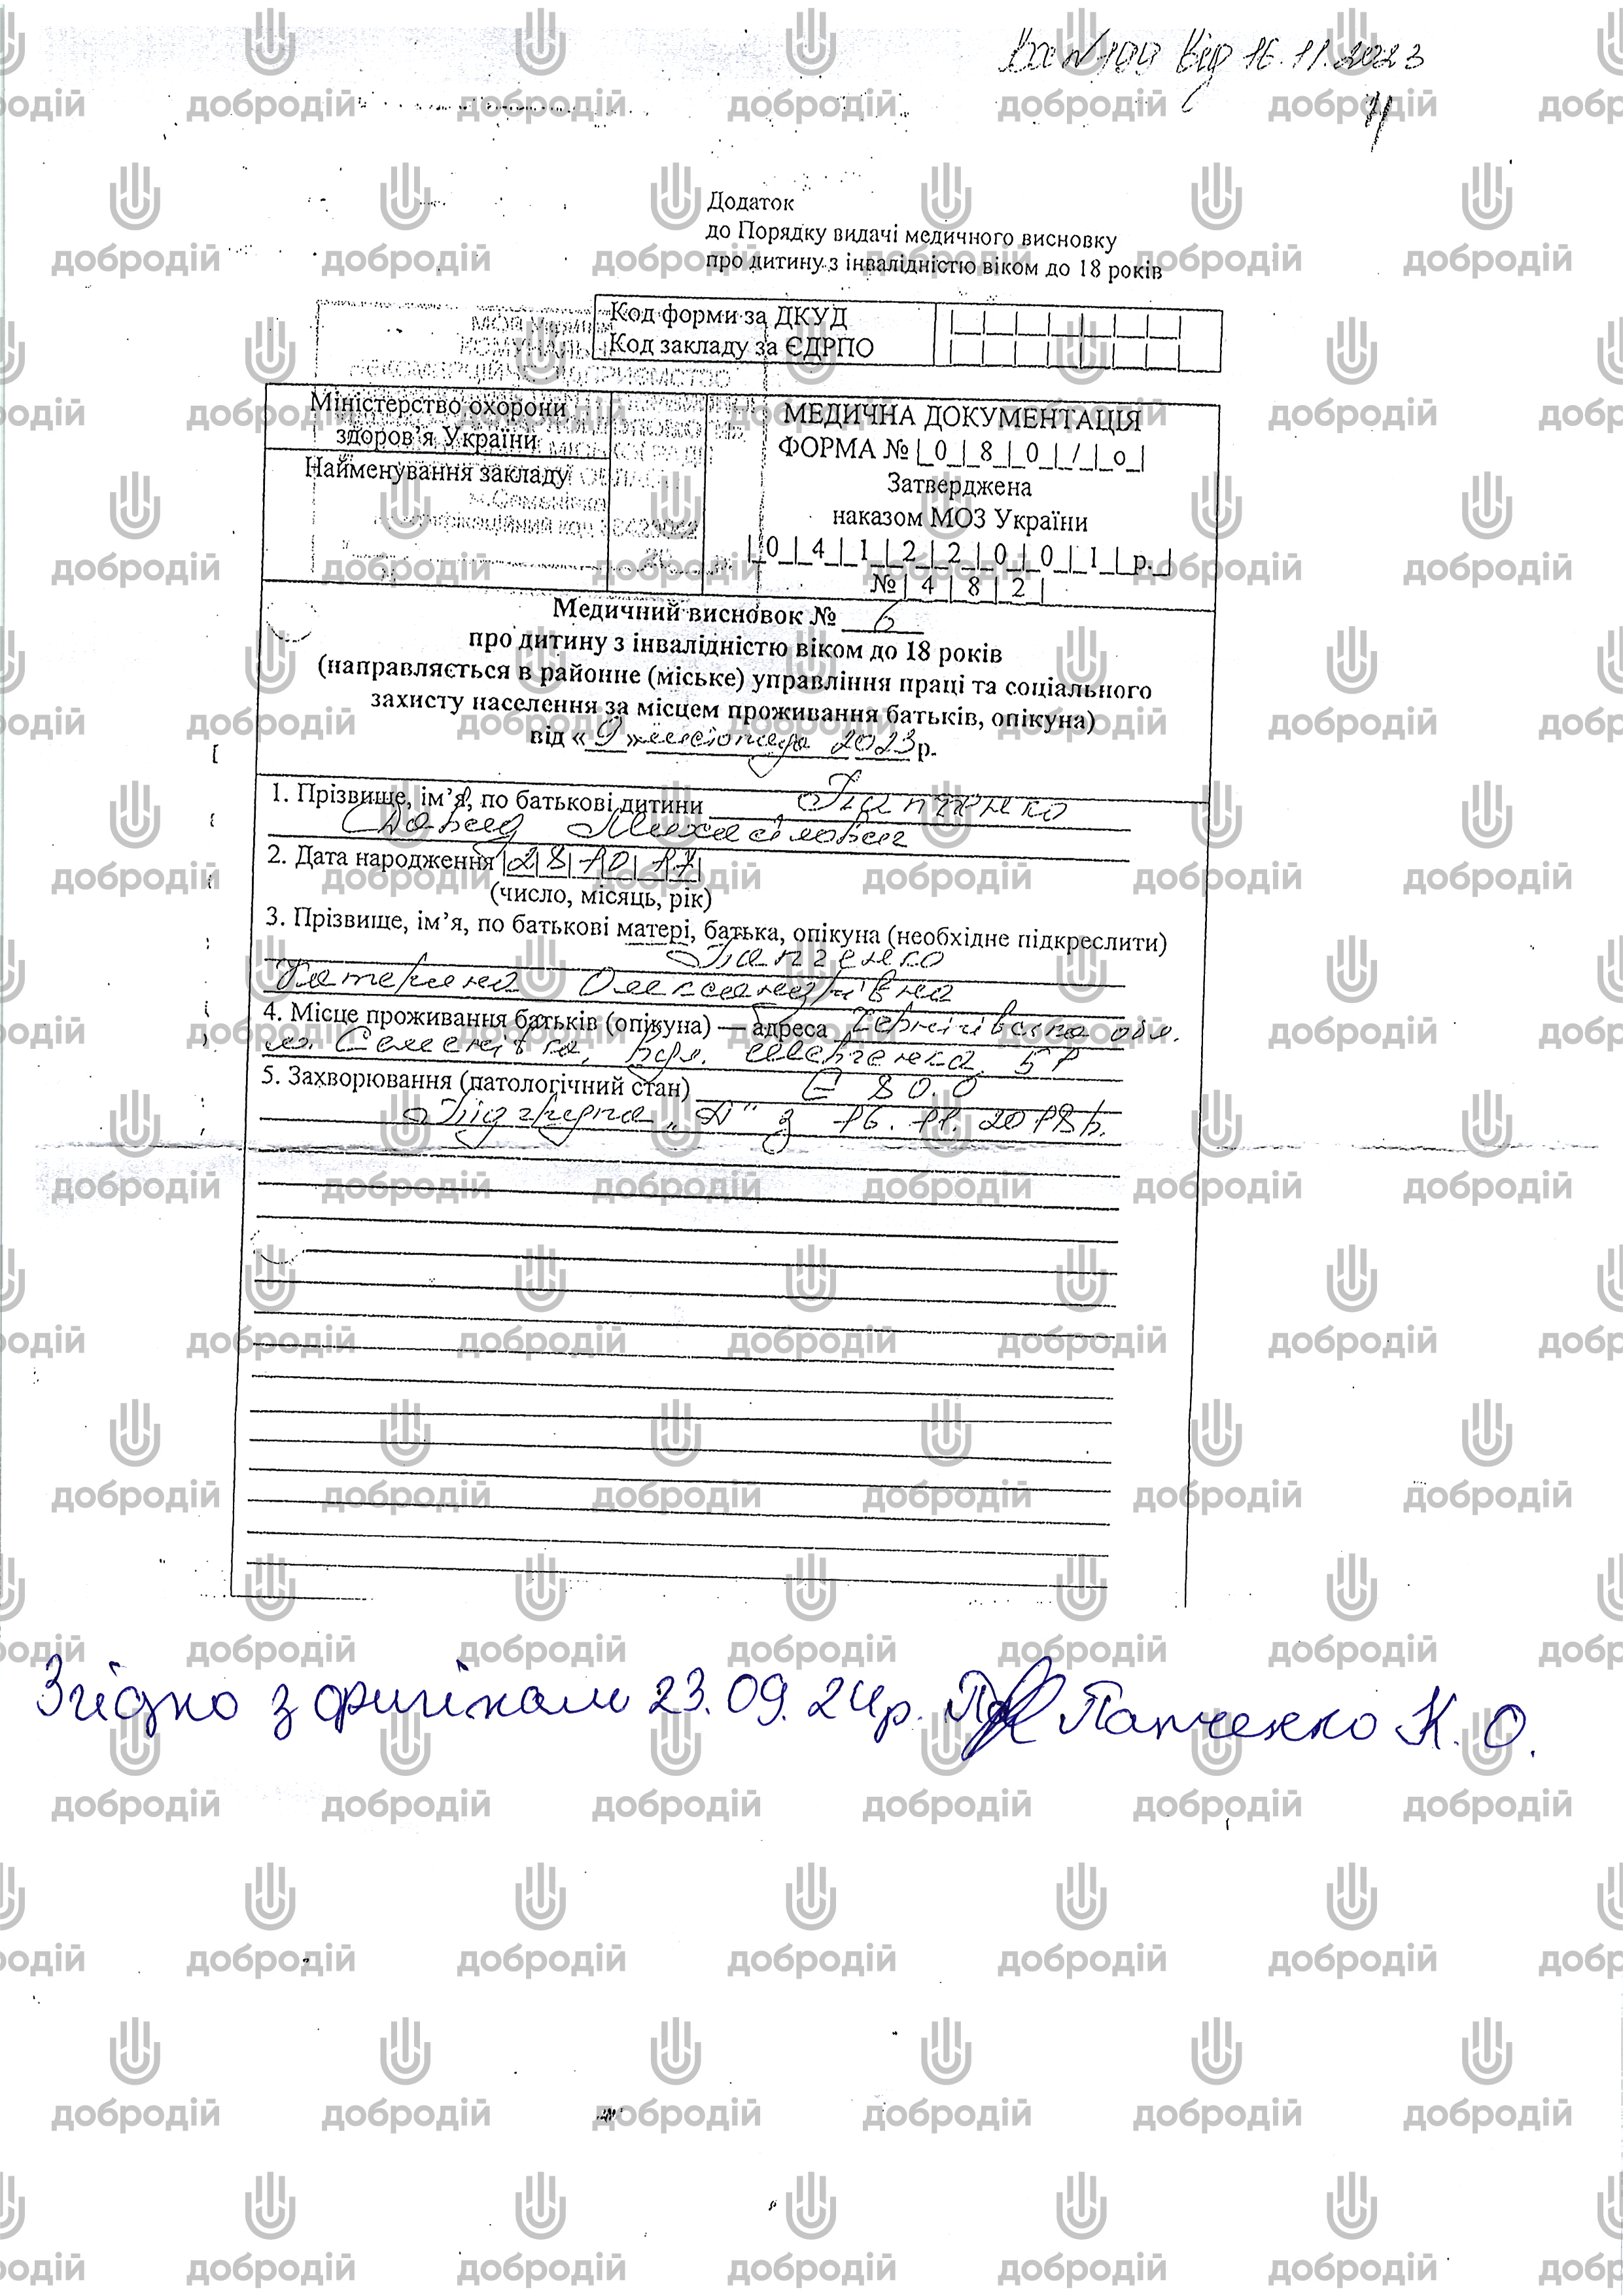 Вх №109 від 16.11.2023
Додаток
до Порядку видачі медичного висновку
про дитину з інвалідністю віком до 18 років
Код форми за ДКУД
Код закладу за ЄДРПО
МОЗ України
КОМУНАЛЬНЕ
НЕКОМЕРЦІЙНЕ ПІДПРИЄМСТВО
МІСЬКОЇ РАДИ
ОБЛАСТІ
м.Семенівка
Ідентифікаційний код
Міністерство охорони
здоров’я України
Найменування закладу
МЕДИЧНА ДОКУМЕНТАЦІЯ
ФОРМА № |_0_|_8_|_0_|_/_|_о_|
Затверджена
наказом МОЗ України
|_0_|_4_|_1_|_2_|_2_|_0_|_0_|_1_|_р._|
№ | 4 | 8 | 2 |
Медичний висновок № 6
про дитину з інвалідністю віком до 18 років
(направляється в районне (міське) управління праці та соціального
захисту населення за місцем проживання батьків, опікуна)
від « 9 » листопада 2023 р.
1. Прізвище, ім’я, по батькові дитини Папченко
Давид Михайлович
2. Дата народження |2|8|1|0|1|7|
(число, місяць, рік)
3. Прізвище, ім’я, по батькові матері, батька, опікуна (необхідне підкреслити)
Папченко
Катерина Олександрівна
4. Місце проживання батьків (опікуна) — адреса Чернігівська обл.
м. Семенівка, вул. Шевченка, 51
5. Захворювання (патологічний стан) G 80.0
Підгрупа „А“ з 16. 11. 2018 р.
Згідно з оригіналом 23.09.24р. Папченко К. О.
добродій